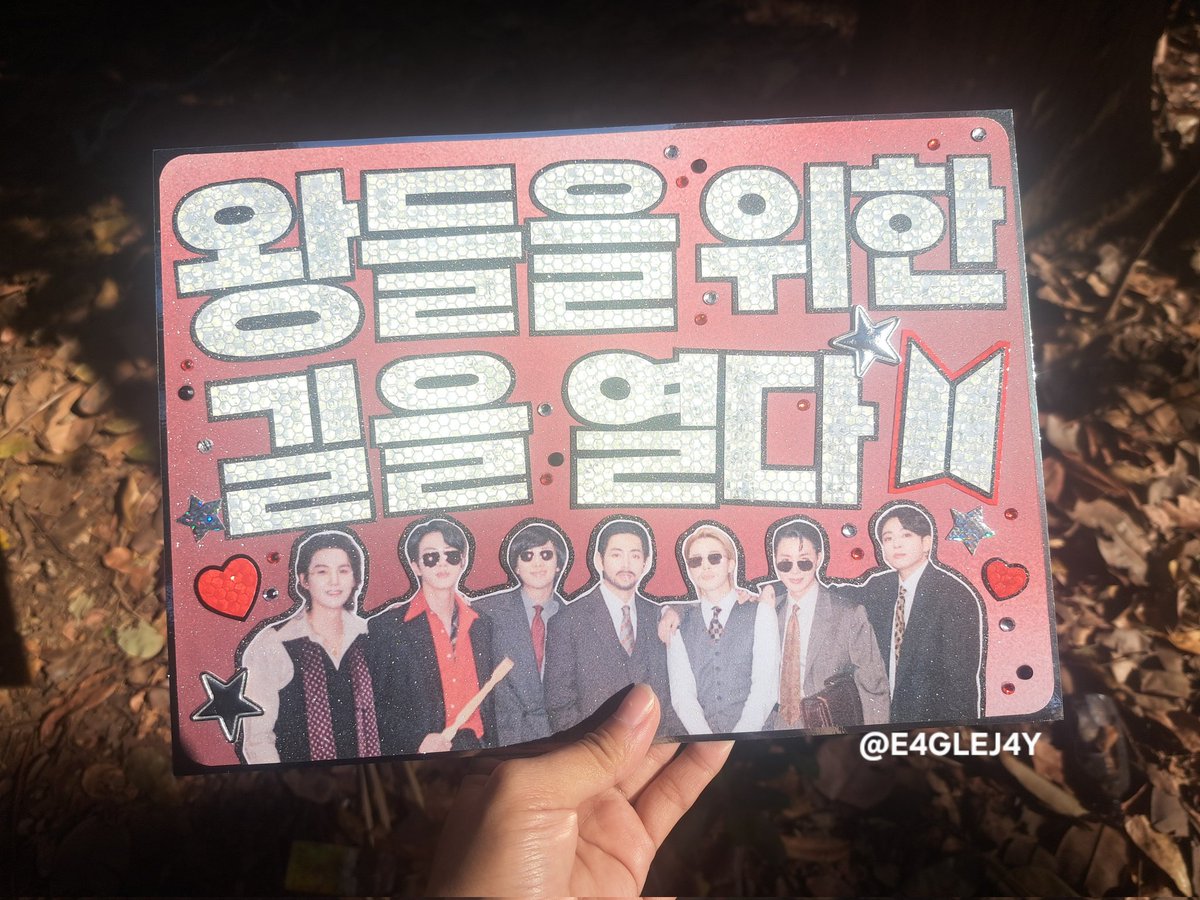 왕들을 위한
길을 열다
@E4GLEJ4Y